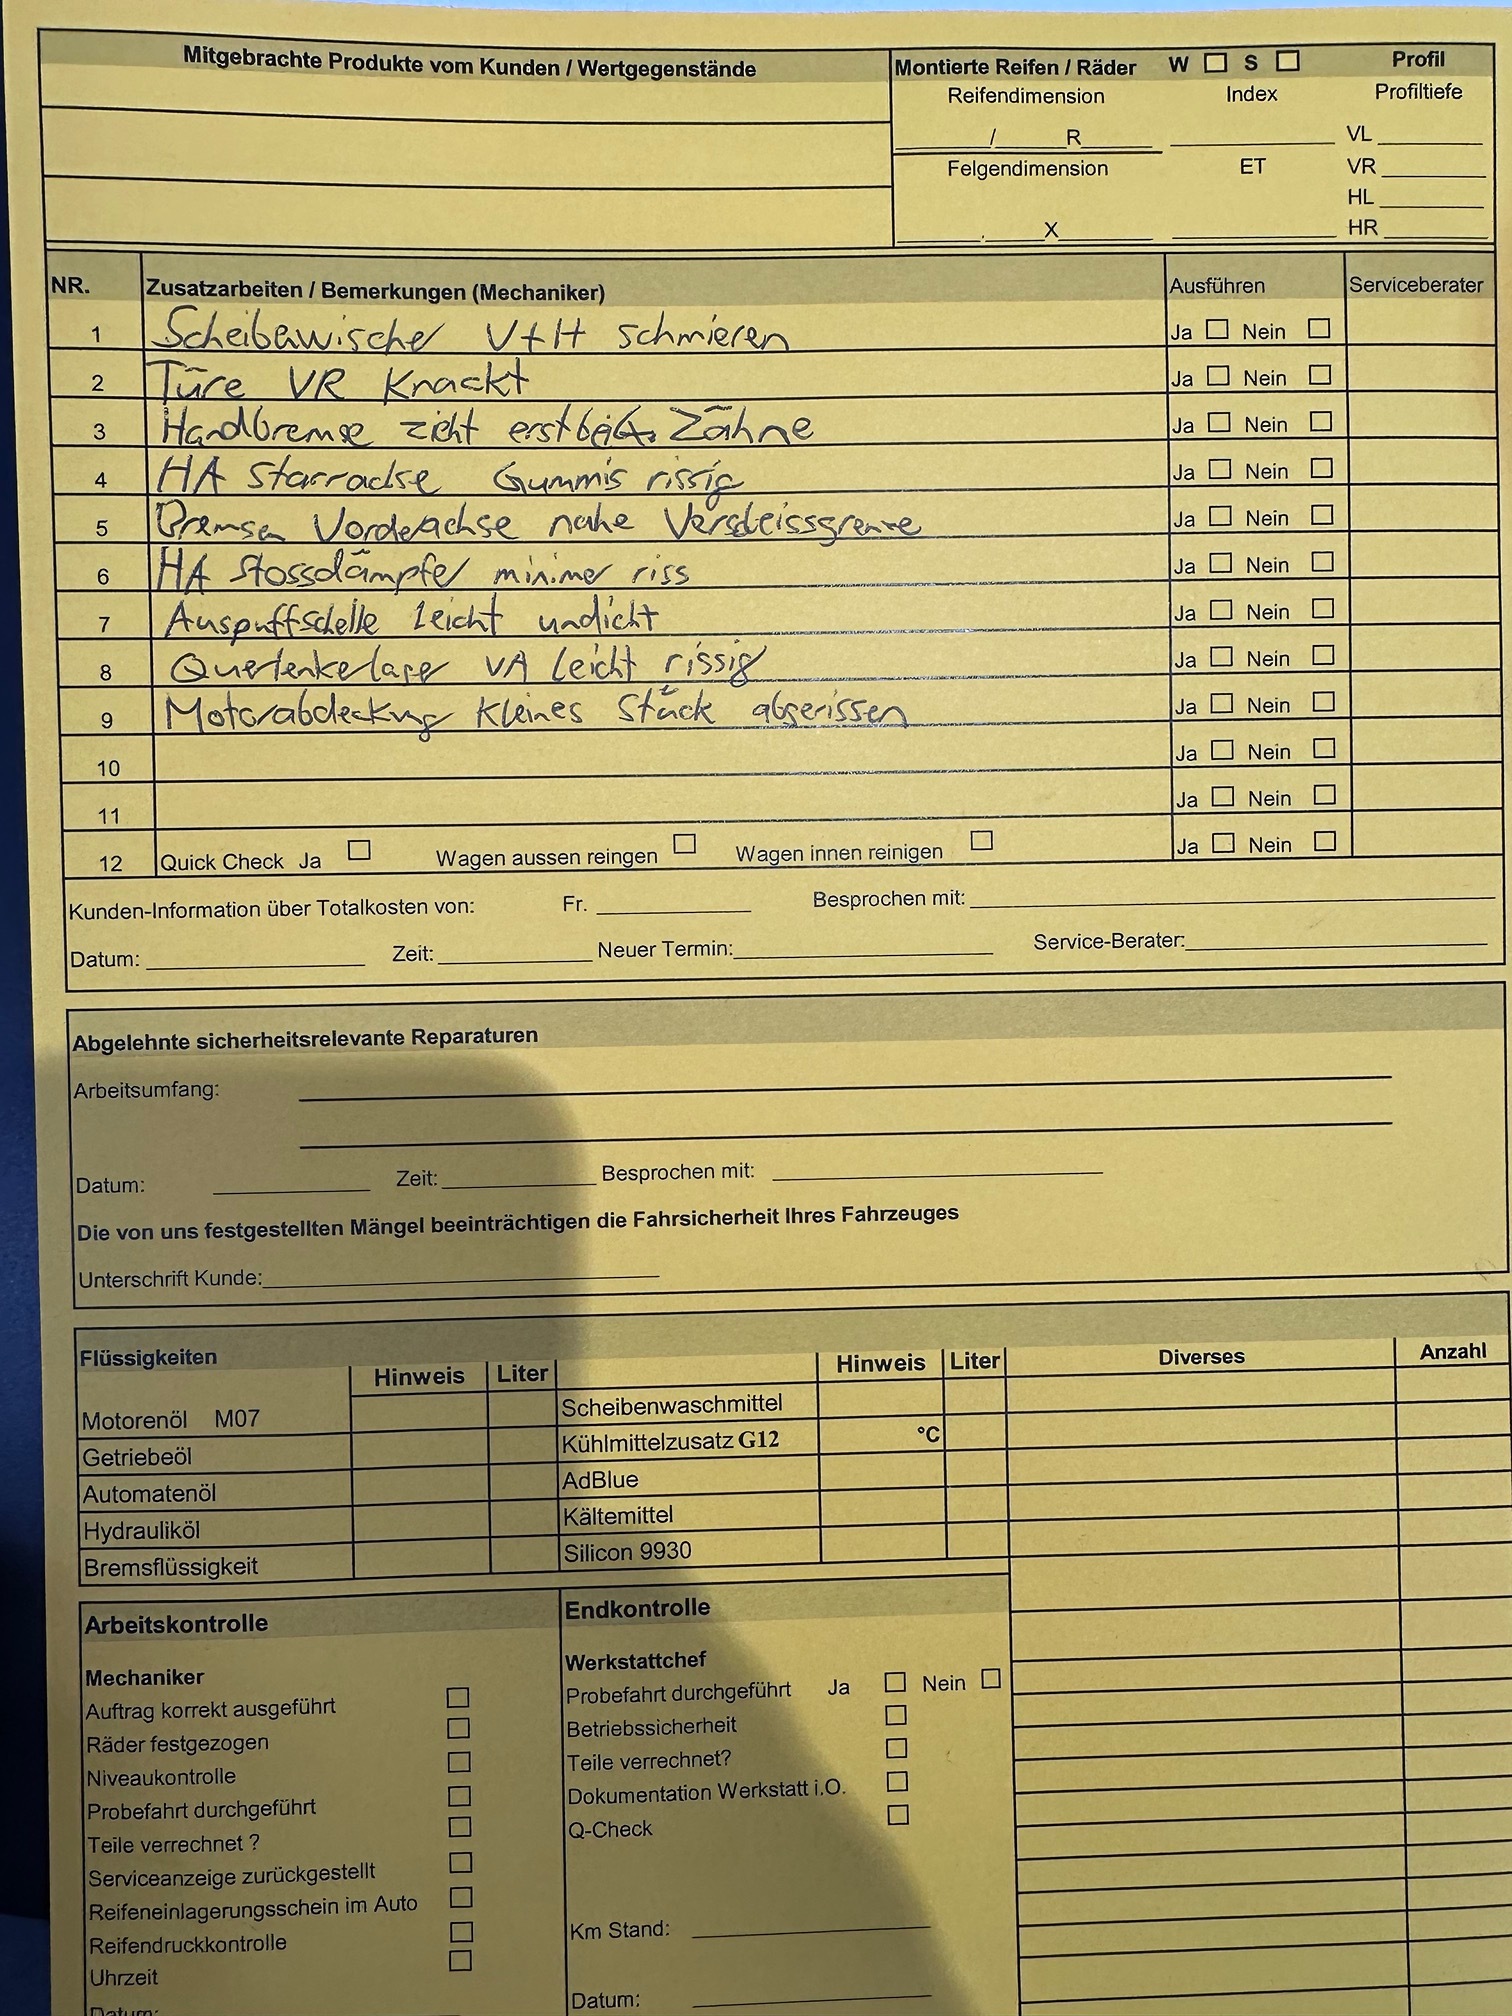 Mitgebrachte Produkte vom Kunden / Wertgegenstände
Montierte Reifen / Räder W ☐ S ☐ Profil
Reifendimension Index Profiltiefe
/ R VL
Felgendimension ET VR
HL
, X HR
NR. Zusatzarbeiten / Bemerkungen (Mechaniker) Ausführen Serviceberater
1 Scheibenwischer V+H schmieren Ja ☐ Nein ☐
2 Türe VR Knackt Ja ☐ Nein ☐
3 Handbremse zieht erst Zähne Ja ☐ Nein ☐
4 HA Starrachse Gummis rissig Ja ☐ Nein ☐
5 Bremsen Vorderachse nahe Versleissgrenze Ja ☐ Nein ☐
6 HA Stossdämpfer minimer riss Ja ☐ Nein ☐
7 Auspuffschelle leicht undicht Ja ☐ Nein ☐
8 Querlenkerlager VA leicht rissig Ja ☐ Nein ☐
9 Motorabdeckung kleines Stück abgerissen Ja ☐ Nein ☐
10 Ja ☐ Nein ☐
11 Ja ☐ Nein ☐
12 Quick Check Ja ☐ Wagen aussen reingen ☐ Wagen innen reinigen ☐ Ja ☐ Nein ☐
Kunden-Information über Totalkosten von: Fr. Besprochen mit:
Datum: Zeit: Neuer Termin: Service-Berater:
Abgelehnte sicherheitsrelevante Reparaturen
Arbeitsumfang:
Datum: Zeit: Besprochen mit:
Die von uns festgestellten Mängel beeinträchtigen die Fahrsicherheit Ihres Fahrzeuges
Unterschrift Kunde:
Flüssigkeiten Hinweis Liter Hinweis Liter Diverses Anzahl
Motorenöl M07 Scheibenwaschmittel
Getriebeöl Kühlmittelzusatz G12 °C
Automatenöl AdBlue
Hydrauliköl Kältemittel
Bremsflüssigkeit Silicon 9930
Arbeitskontrolle
Mechaniker
Auftrag korrekt ausgeführt ☐
Räder festgezogen ☐
Niveaukontrolle ☐
Probefahrt durchgeführt ☐
Teile verrechnet ? ☐
Serviceanzeige zurückgestellt ☐
Reifeneinlagerungsschein im Auto ☐
Reifendruckkontrolle ☐
Uhrzeit ☐
Datum:
Endkontrolle
Werkstattchef
Probefahrt durchgeführt Ja ☐ Nein ☐
Betriebssicherheit ☐
Teile verrechnet? ☐
Dokumentation Werkstatt i.O. ☐
Q-Check ☐
Km Stand:
Datum: